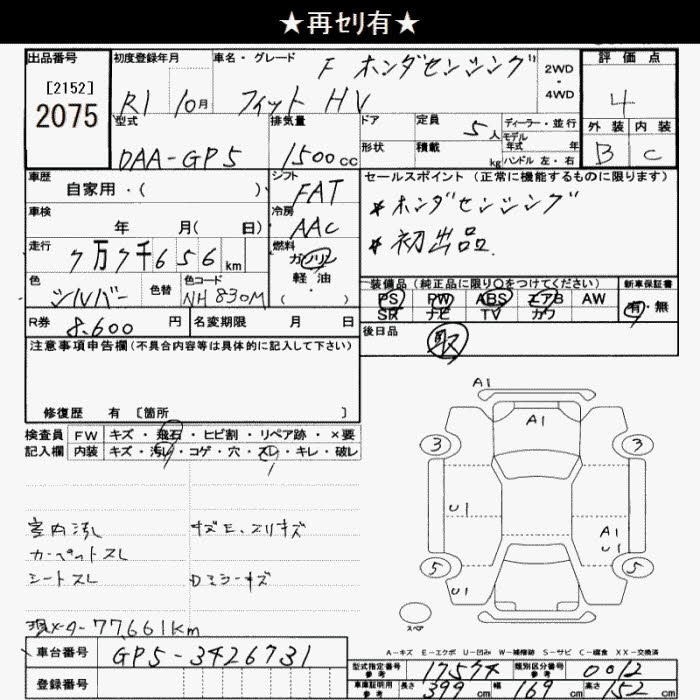 ★再セリ有★
出品番号
[2152]
2075
初度登録年月
R1 10月
車名・グレード
F ホンダセンシング
フィット HV
2WD
・
4WD
評価点
4
外装 内装
B C
型式
DAA-GP5
排気量
1500cc
ドア
形状
定員
5人
積載
kg
ディーラー・並行
モデル
年式 年
ハンドル 左・右
車歴
自家用・( )
シフト
FAT
セールスポイント (正常に機能するものに限ります)
*ホンダセンシング
*初出品
車検
年 月( 日)
冷房
AAC
走行
7万7千656km
燃料
ガソリン
軽・油
( ・ )
色
シルバー
色替
色コード
NH830M
装備品 (純正品に限り○をつけてください)
PS PW ABS エアB AW
SR ナビ TV カワ
新車保証書
有・無
R券
8,600円
名変期限 月 日
後日品
取
注意事項申告欄(不具合内容等は具体的に記入して下さい)
修復歴 有 〔箇所 〕
検査員 FW キズ・飛石・ヒビ割・リペア跡・×要
記入欄 内装 キズ・汚レ・コゲ・穴・スレ・キレ・破レ
A1
A1
3 3
U1
A1
U1
5 5
U1
スペア
室内汚レ
カーペットスレ
シートスレ
キズE、スリキズ
Dミラーキズ
現メーター77,661km
A-キズ E-エクボ U-凹み W-補修跡 S-サビ C-腐食 XX-交換済
車台番号
GP5-3426731
登録番号
型式指定番号
参考
17574
類別区分番号
参考
0012
車庫証明用
参考
長さ 399cm 幅 169cm 高さ 152cm